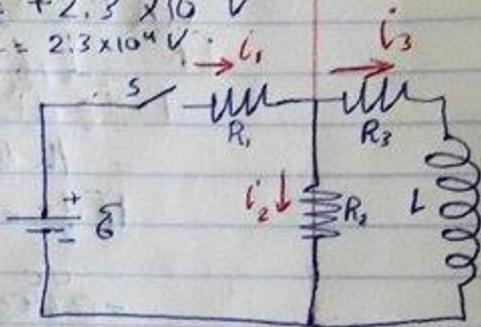 +2.3 x10 V
= 2.3x10⁴ V.
i₁
i₃
S
R₁
R₃
+
ℰ
-
i₂
R₂
L